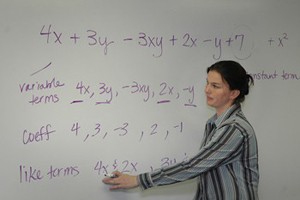 4x + 3y - 3xy + 2x - y + 7 + x²
variable terms 4x, 3y, -3xy, 2x, -y constant
coeff 4, 3, -3, 2, -1
like terms 4x & 2x, 3y